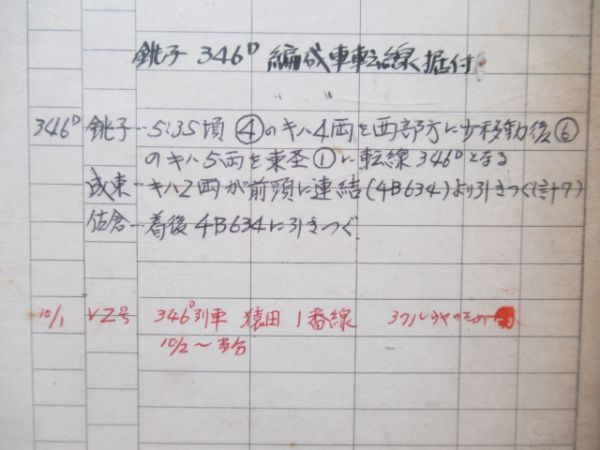 銚子 346D 編成車転線据付
〃 〃
346D 銚子 - 5:35頃 ④のキハ4両を西部方に少移動後⑥
のキハ5両を東 ①に転線346Dとなる
成東 - キハ2両が前頭に連結(4B634)より引きつぐ(計7)
佐倉 - 着後4B634に引きつぐ
10/1 VZ号 346D列車 猿田 1番線
10/2～当分